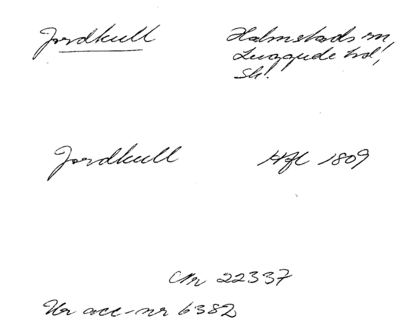 Jordkull
Halmstads sn,
Luggude hd,
Sk.
Jordkull
Hfl 1809
CNr 22337
Ur acc-nr 6382